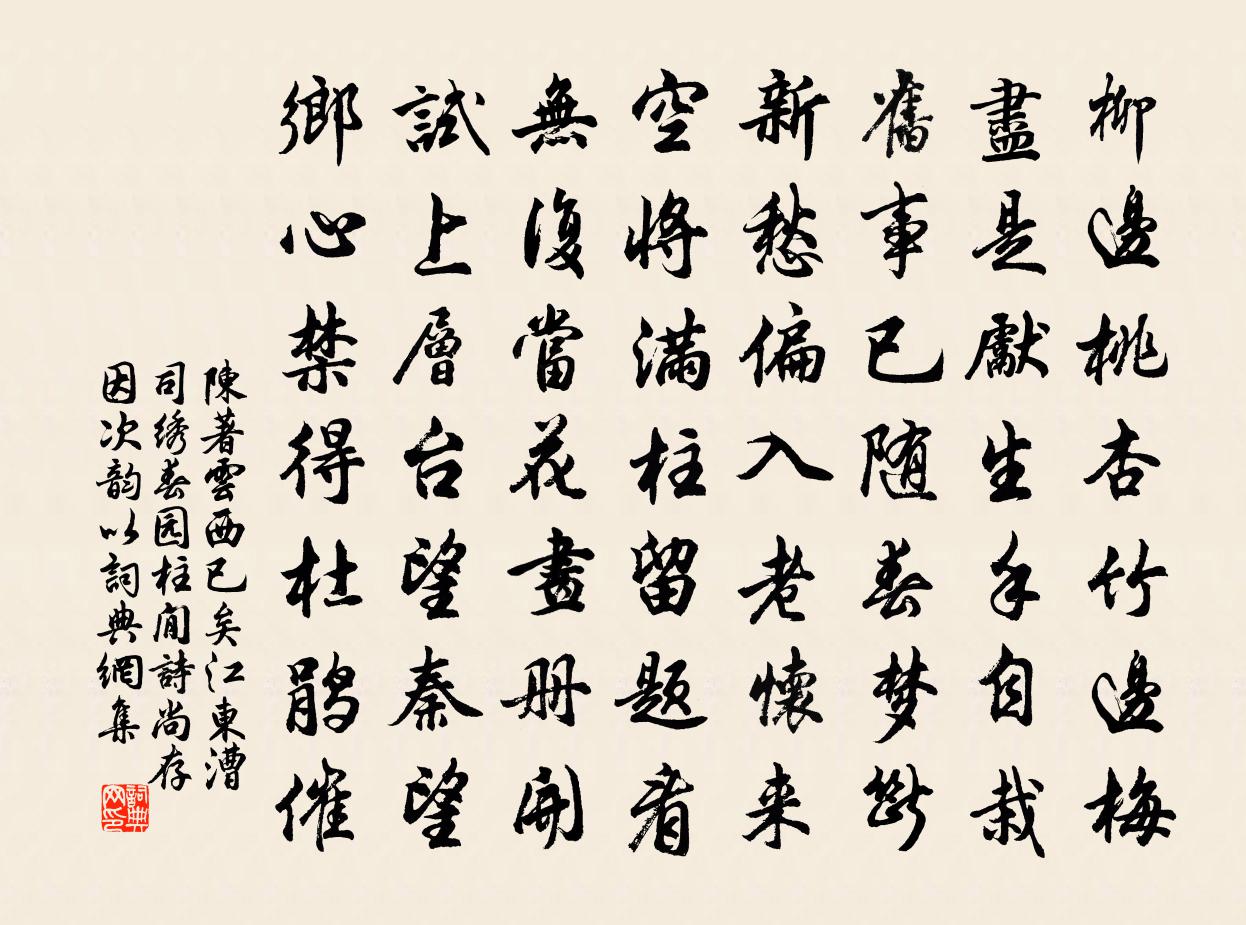 柳邊桃杏竹邊梅
盡是獻生手自栽
舊事已随春梦斷
新愁偏入老懷来
空將满柱留题看
無復當花畫册開
試上層台望秦望
鄉心禁得杜鹃催
陳著雲西已矣江東漕
司绣春园柱間詩尚存
因次韵以詞典網集
詞典网印